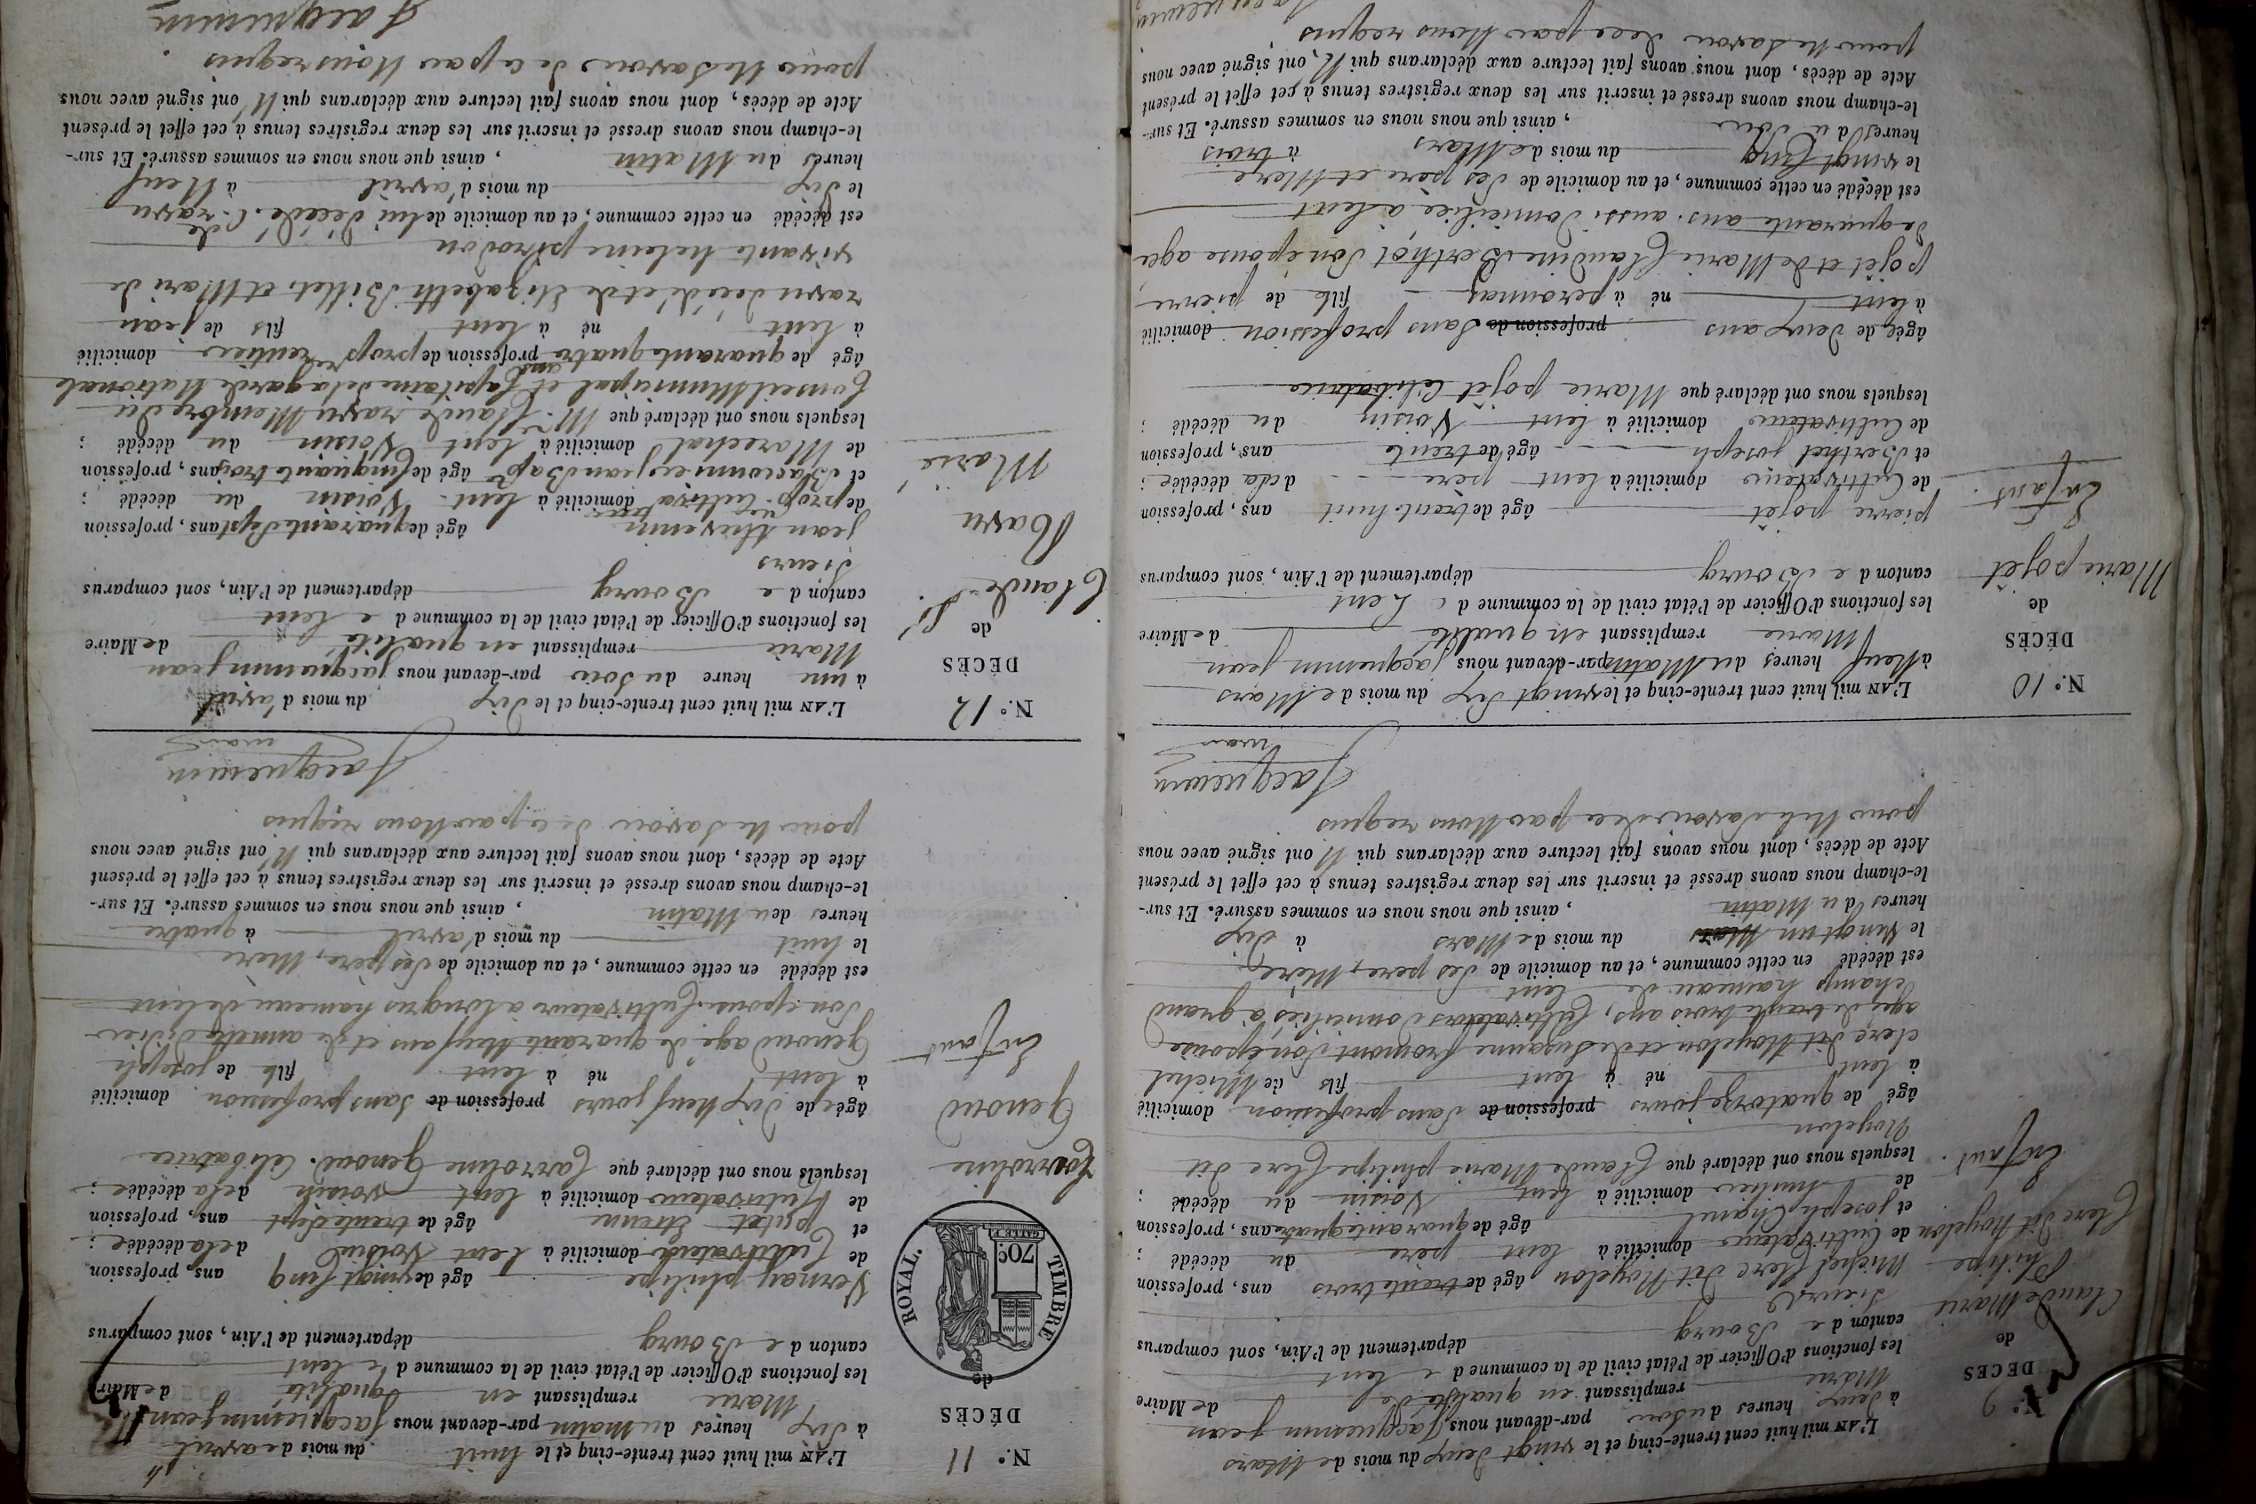 N.° 9
DÉCÈS
de
Claude Marie
philipe
Clere dit Moyelon
Enfant.
L'AN mil huit cent trente-cinq et le vingt deux du mois de Mars
à deux heures du soir par-devant nous jacquemin jean
Marie remplissant en qualité de de Maire
les fonctions d'Officier de l'état civil de la commune d e lent
canton d e Bourg département de l'Ain, sont comparus
Sieurs
Michel Clere dit Moyelon âgé de trente trois ans, profession
de Cultivateur domicilié à lent père du décédé ;
et joseph Chanel âgé de quarante quatre ans, profession
de domicilié à lent Voisin du décédé ;
lesquels nous ont déclaré que Claude Marie philipe Clere dit
Moyelon
âgé de quatorze jours profession de Sans profession domicilié
à lent né à lent fils de Michel
clere dit Moyelon et de Suzanne fromont Son épouse
agée de trente trois ans, Cultivateurs domiciliés à grand
champ hameau de lent
est décédé en cette commune, et au domicile de Ses père, Mère
le Vingt un du mois de Mars à dix
heures du Matin , ainsi que nous nous en sommes assuré. Et sur-
le-champ nous avons dressé et inscrit sur les deux registres tenus à cet effet le présent
Acte de décès, dont nous avons fait lecture aux déclarans qui N'ont signé avec nous
pour Ne Savoir de ce par Nous requis
Jacquemin
maire
N.° 10
DÉCÈS
de
Marie pojet
Enfant.
L'AN mil huit cent trente-cinq et le vingt Six du mois de Mars
à Neuf heures du Matin par-devant nous jacquemin jean
Marie remplissant en qualité de Maire
les fonctions d'Officier de l'état civil de la commune d e Lent
canton d e Bourg département de l'Ain, sont comparus
pierre pojet âgé de trente huit ans, profession
de Cultivateur domicilié à lent père de la décédée ;
et Berthet joseph âgé de trente ans, profession
de Cultivateur domicilié à lent Voisin du décédé ;
lesquels nous ont déclaré que Marie pojet Célibataire
âgée de deux ans profession de Sans profession domicilié
à lent né à peronnas fils de pierre
pojet et de Marie Claudine Berthot Son épouse agée
de quarante ans aussi domiciliée à lent
est décédé en cette commune, et au domicile de Ses père et Mère
le vingt Cinq du mois de Mars à trois
heures d u Soir , ainsi que nous nous en sommes assuré. Et sur-
le-champ nous avons dressé et inscrit sur les deux registres tenus à cet effet le présent
Acte de décès, dont nous avons fait lecture aux déclarans qui N'ont signé avec nous
pour Ne Savoir de ce par Nous requis
Jacquemin
N.° 11
DÉCÈS
de
TIMBRE ROYAL.
70c
Carroline
Genoud
Enfant
L'AN mil huit cent trente-cinq et le huit du mois de avril
à dix heures du Matin par-devant nous jacquemin jean
Marie remplissant en qualité de Maire
les fonctions d'Officier de l'état civil de la commune d e lent
canton d e Bourg département de l'Ain, sont comparus
Vernay philipe âgé de vingt Cinq ans, profession
de Cultivateur domicilié à lent Voisin de la décédée ;
et putet Etienne âgé de trente Sept ans, profession
de Cultivateur domicilié à lent voisin de la décédée ;
lesquels nous ont déclaré que Carroline Genoud. Célibatrice
âgée de dix Neuf jours profession de Sans profession domicilié
à lent né à lent fils de joseph
Genoud agé de quarante Neuf ans et de annette didier
Son épouse. Cultivateur à longris hameau de lent
est décédé en cette commune, et au domicile de Ses père, Mère
le huit du mois d'avril à quatre
heures deu Matin , ainsi que nous nous en sommes assuré. Et sur-
le-champ nous avons dressé et inscrit sur les deux registres tenus à cet effet le présent
Acte de décès, dont nous avons fait lecture aux déclarans qui N'ont signé avec nous
pour Ne Savoir de ce par Nous requis
Jacquemin
maire
N.° 12
DÉCÈS
de
Claude
Ravu
Marié
L'AN mil huit cent trente-cinq et le dix du mois d'avril
à une heure du Soir par-devant nous jacquemin jean
Marie remplissant en qualité de Maire
les fonctions d'Officier de l'état civil de la commune d e lent
canton d e Bourg département de l'Ain, sont comparus
Sieurs
jean thevenin âgé de quarante Sept ans, profession
de prop. re Cultivateur domicilié à lent Voisin du décédé ;
et jean Bap.te âgé de Cinquante trois ans, profession
de Marechal domicilié à lent Voisin du décédé ;
lesquels nous ont déclaré que M. Claude ravu Membre du
Conseil Municipal et Capitaine de la garde Nationale
âgé de quarante quatre ans profession de prop.re rentier domicilié
à lent né à lent fils de jean
ravu décédé et de Elizabeth Billet et Mari de
vivante heleine pirodon
est décédé en cette commune, et au domicile de lui décédé C. ravu
le dix du mois d'avril à Neuf
heures du Matin , ainsi que nous nous en sommes assuré. Et sur-
le-champ nous avons dressé et inscrit sur les deux registres tenus à cet effet le présent
Acte de décès, dont nous avons fait lecture aux déclarans qui N'ont signé avec nous
pour Ne Savoir de ce par Nous requis
Jacquemin